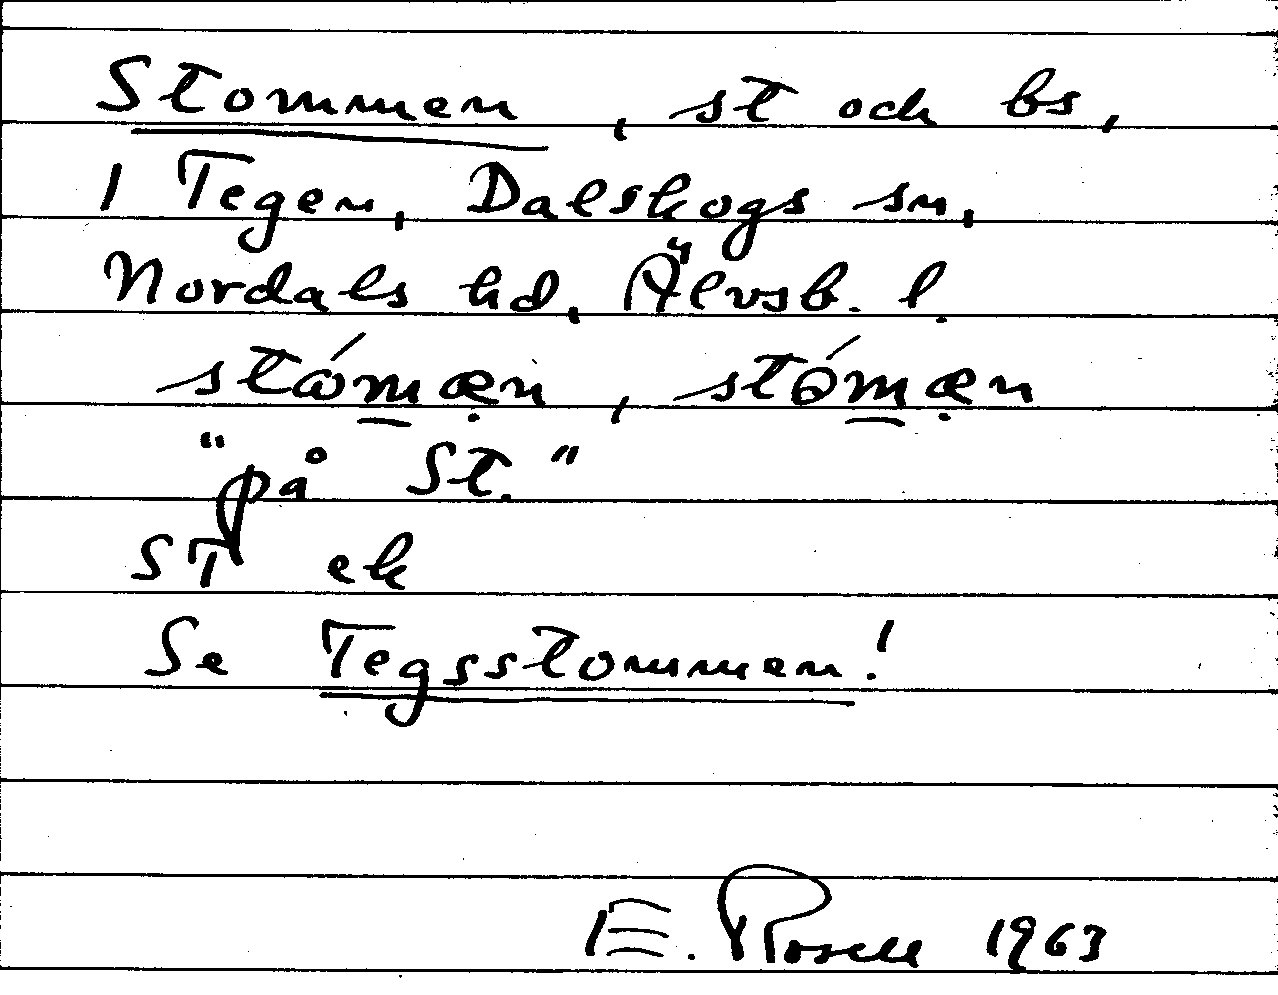 Stommen, st och bs,
1 Tegen, Dalskogs sn,
Nordals hd, Älvsb. l.
stómæ̣n, stómæ̣n
"på St."
ST ek
Se Tegsstommen!
E. Rosell 1963